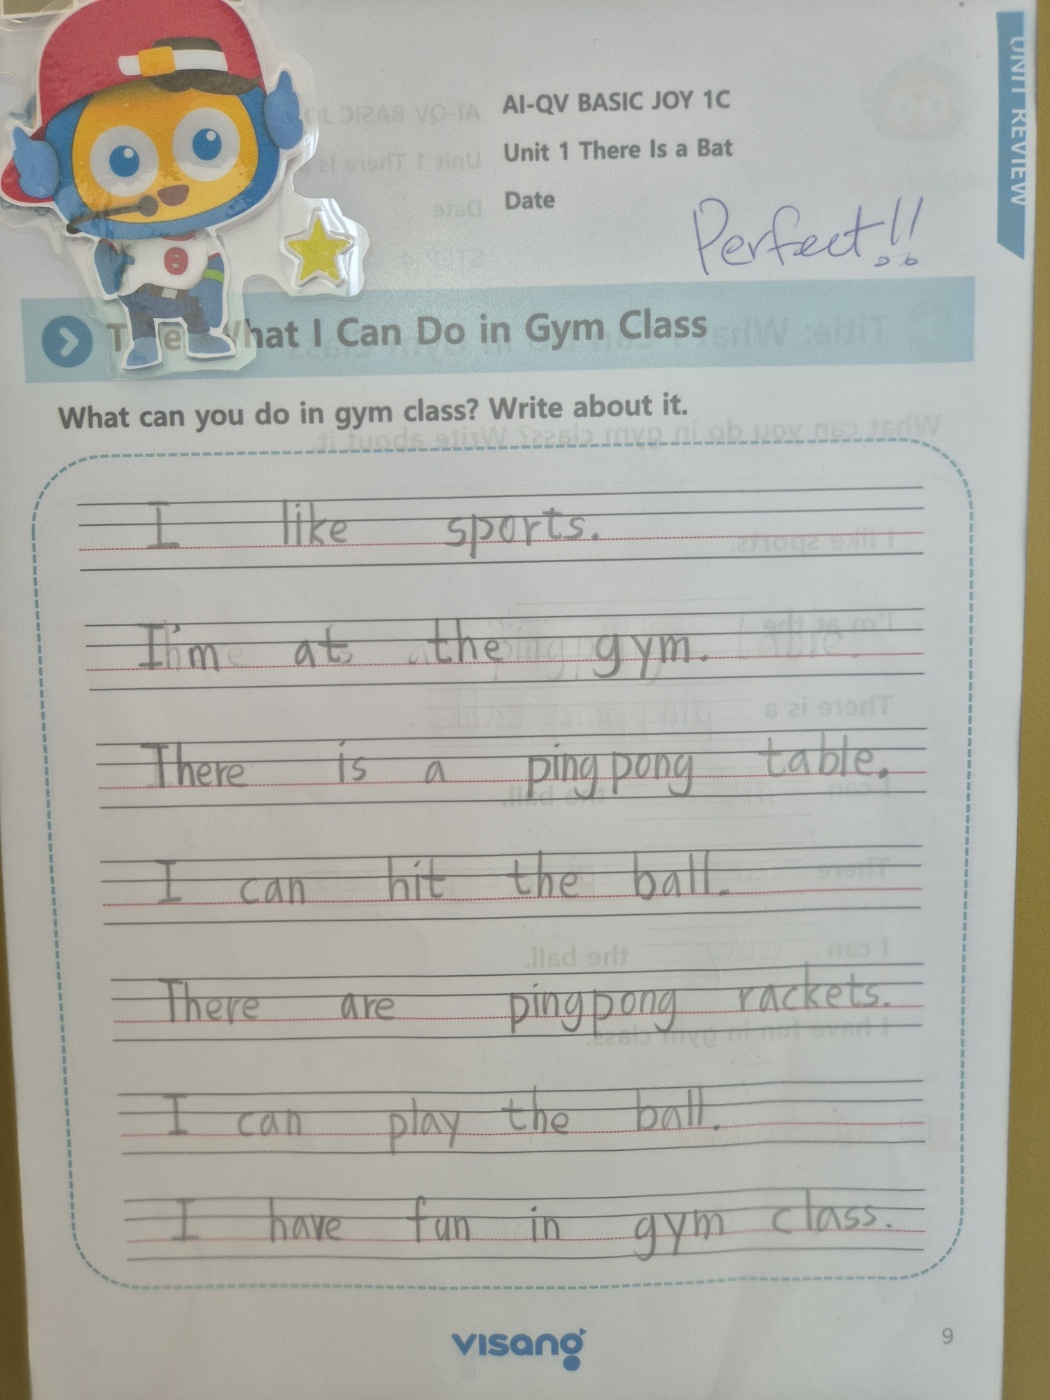 UNIT REVIEW
AI-QV BASIC JOY 1C
Unit 1 There Is a Bat
Date
Perfect!!
What I Can Do in Gym Class
What can you do in gym class? Write about it.
I like sports.
I'm at the gym.
There is a pingpong table.
I can hit the ball.
There are pingpong rackets.
I can play the ball.
I have fun in gym class.
visang
9